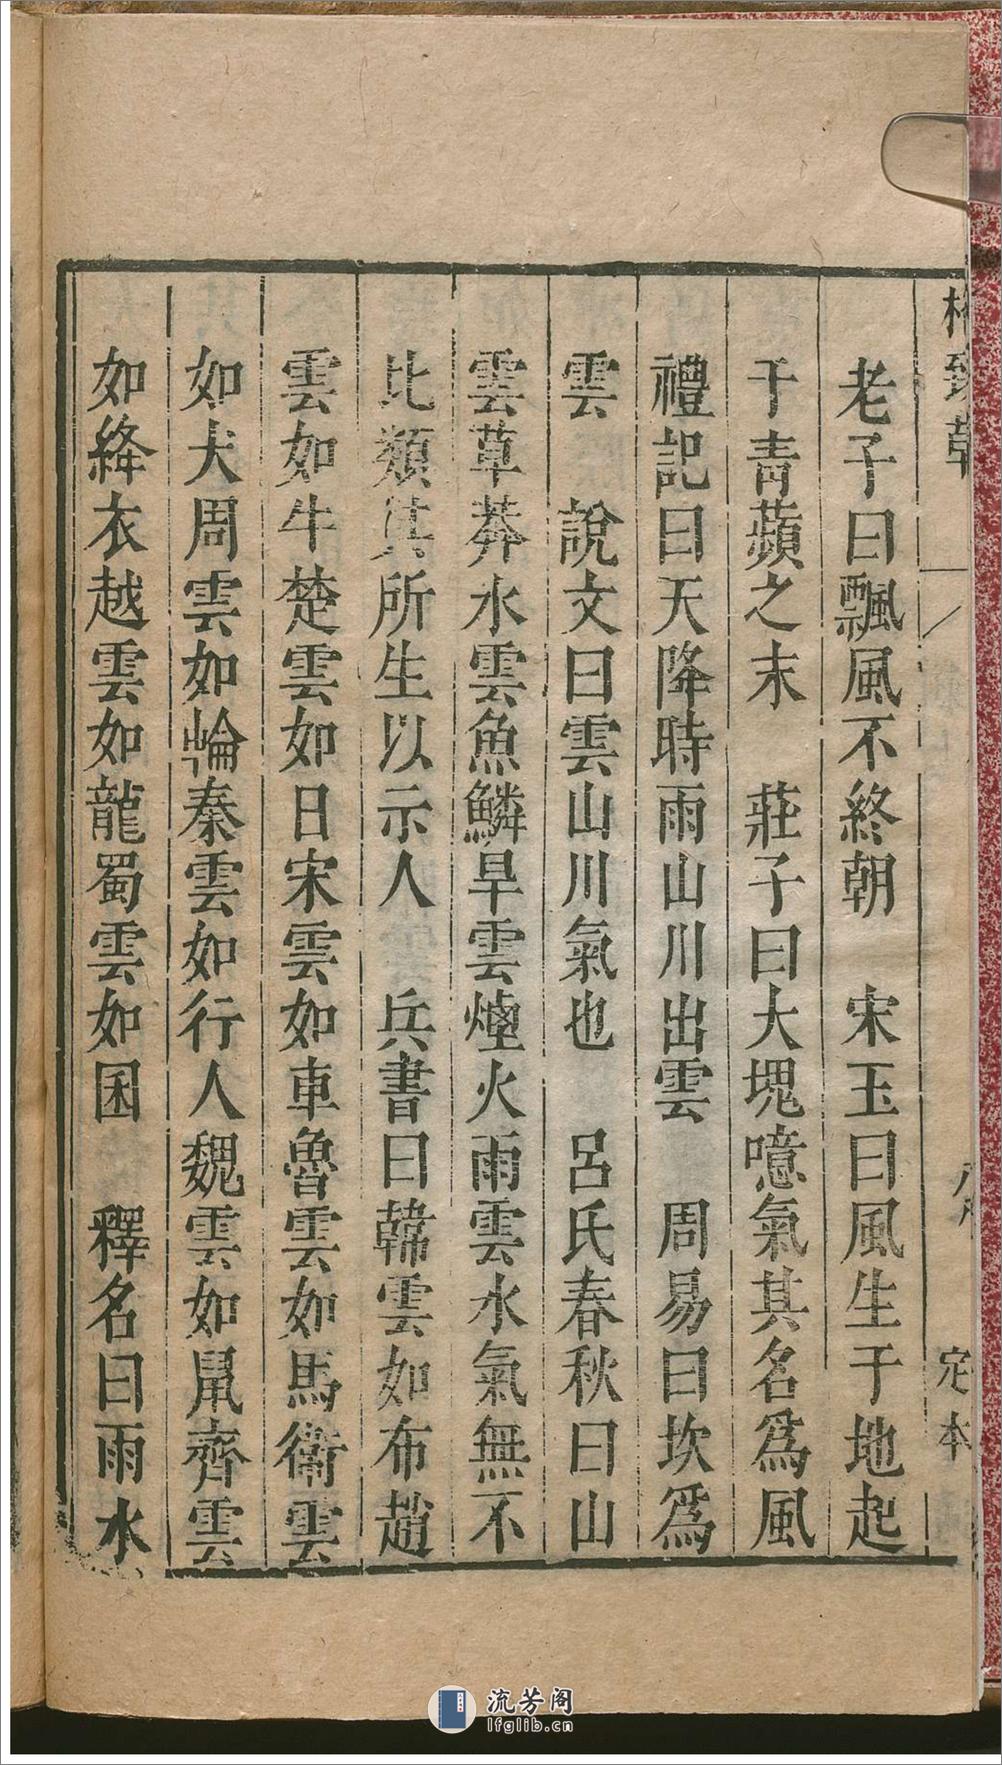 格致草
定本
老子曰飄風不終朝　宋玉曰風生于地起
于青蘋之末　莊子曰大塊噫氣其名爲風
禮記曰天降時雨山川出雲　周易曰坎爲
雲　說文曰雲山川氣也　呂氏春秋曰山
雲草莽水雲魚鱗旱雲煙火雨雲水氣無不
比類其所生以示人　兵書曰韓雲如布趙
雲如牛楚雲如日宋雲如車魯雲如馬衛雲
如犬周雲如輪秦雲如行人魏雲如鼠齊雲
如絳衣越雲如龍蜀雲如囷　釋名曰雨水
流芳阁
lfglib.cn